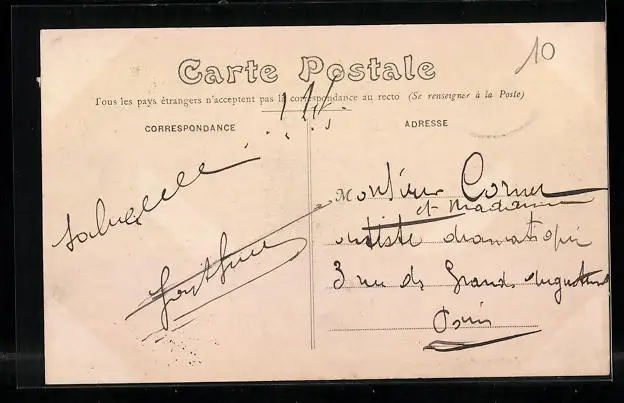 10
Carte Postale
Tous les pays étrangers n'acceptent pas la correspondance au recto (Se renseigner à la Poste)
CORRESPONDANCE
ADRESSE
Monsieur Corner
et Madame
artiste dramatique
3 rue des Grands Augustins
Paris